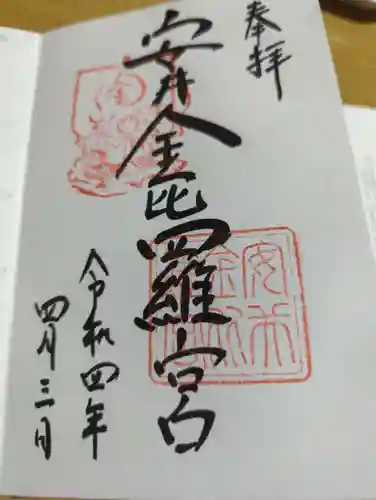 奉拝
安井金毘羅宮
令和四年
四月三日